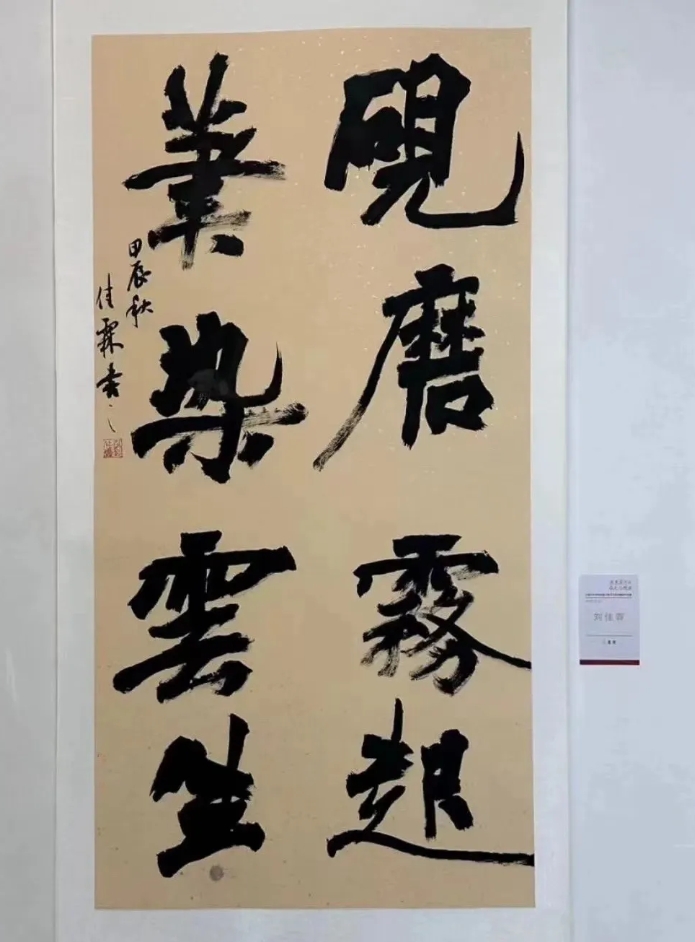 硯磨霧起
筆染雲生
甲辰秋
佳霖書